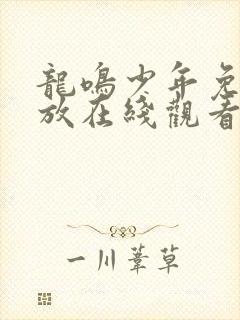 龍鳴少年免
放在綫觀看
一川葦草